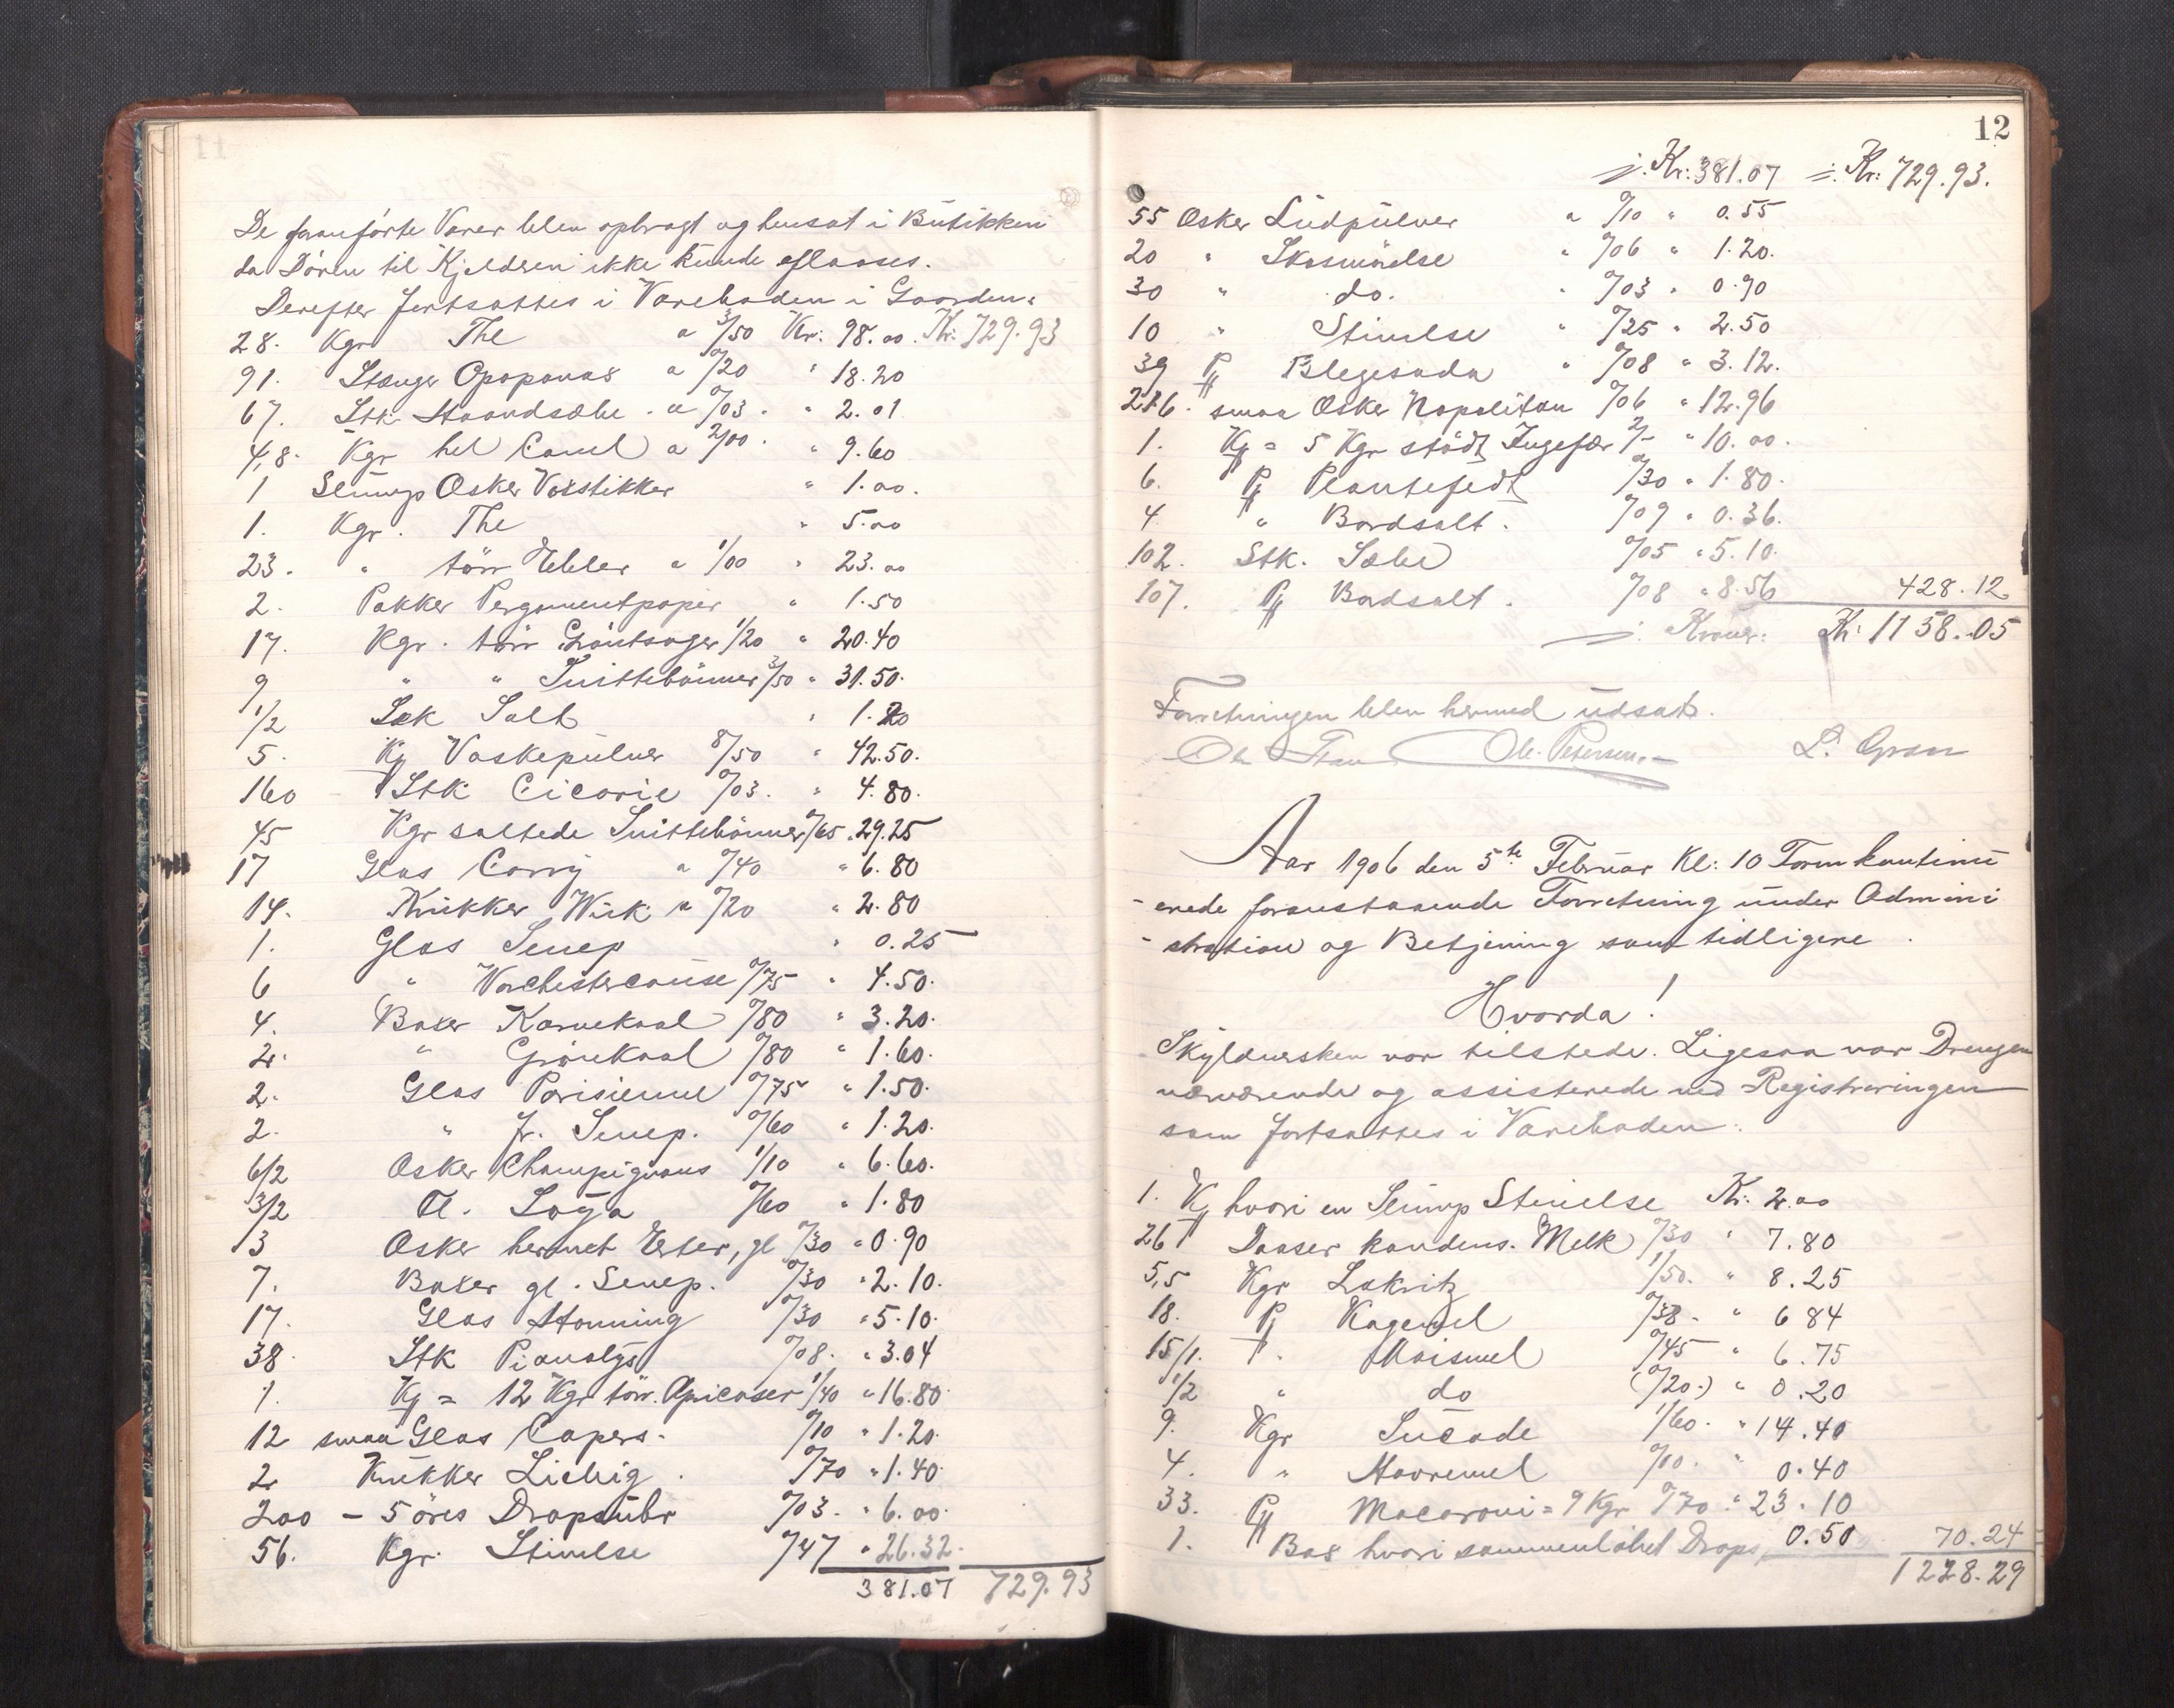 De framførte Varer blev opbragt og hensat i Butikken
da Døren til Kjelderen ikke kunde aflaases.
Derefter fortsattes i Vareboden i Gaarden.
28. Kgr The a 3/50 Kr: 98.00. Kr: 729.93
91. Stænger Opoponax a 0/20 " 18.20
67. Stk Haandsæbe. a 0/03. " 2.01
4,8. Kgr hel Canel a 2/00. " 9.60
1 Slump Æsker Voxstikker " 1.00.
1. Kgr. The " 5.00
23. " tørr Æbler a 1/00 " 23.00
2. Pakker Pergamentpapir " 1.50
17. Kgr. tørr Grøntsager 1/20 " 20.40
9 " " Snittebønner 3/50 " 31.50.
1/2 Sæk Salt " 1.20
5. Kg Vaskepulver 8/50 " 42.50.
160 Stk Cicorie 0/03. " 4.80.
45 Kgr saltede Snittebønner 0/65 " 29.25
17 Glas Carry a 0/40 " 6.80
14. Krukker Wük a 0/20 " 2.80
1. Glas Senep " 0.25
6 " Worchestercause 0/75 " 4.50.
4. Boxer Karvekaal 0/80 " 3.20.
2. " Grønkaal 0/80 " 1.60.
2. Glas Parisienne 0/75 " 1.50.
2. " fr. Senep. 0/60 " 1.20.
6/2 Æsker Champignons 1/10 " 6.60.
3/2 Fl. Soya 0/60 " 1.80
3 Æsker hermet Erter, gl 0/30 " 0.90
7. Boxer gl. Senep. 0/30 " 2.10.
17. Glas Honning 0/30 " 5.10.
38. Stk Pianolys 0/08. " 3.04
1. Kg = 12 Kgr tørr. Apricoser 1/40 " 16.80.
12 smaa Glas Capers. 0/10 " 1.20.
2 Krukker Liebig. 0/70 " 1.40.
200 - 5 øres Dropsrübr 0/03. " 6.00.
56. Kgr. Stivelse 0/47 " 26.32.
381.07 729.93
12
j. Kr: 381.07 j. Kr: 729.93.
55 Æsker Ludpulver a 0/10 " 0.55
20 " Skosmörelse " 0/06 " 1.20.
30 " do. " 0/03 " 0.90
10 " Stivelse " 0/25 " 2.50
39 Pk Blegesoda " 0/08 " 3.12.
216. smaa Æsker Napolitan 0/06 " 12.96
1. Kg = 5 Kgr stødt Ingefær 2/- " 10.00.
6. Pk Plantefedt 0/30 " 1.80.
4 " Bordsalt. 0/09 " 0.36.
102. Stk. Sæbe 0/05 " 5.10.
107. Pk Bordsalt. 0/08 " 8.56 428.12
j. Kroner: Kr: 1158.05
Forretningen blev hermed udsat.
Ole Petersen. L. Gran
Aar 1906 den 5te Februar Kl: 10 Form kontinu-
-erede foranstaaende Forretning under Admini
-stration og Betjening som tidligere.
Hvorda!
Skyldnersken var tilstede. Ligesaa var Drengen
nærværende og assisterede ved Registreringen
som fortsattes i Vareboden.
1. Kg hvori en Slump Stivelse Kr. 2.00
26 Daaser kondens. Melk 0/30 " 7.80
5,5 Kgr Lakritz 1/50. " 8.25
18. Pk Kagemel 0/38. " 6 84
15/1. " Maismel 0/45 " 6.75
1/2 " do (0/20.) " 0.20
9. Kgr Sucade 1/60. " 14.40
4. " Havremel 0/10. " 0.40
33. Pk Macaroni = 9 Kgr 0/70 " 23.10
1. Box hvori sammenløbet Drops 0.50 70.24
1228.29